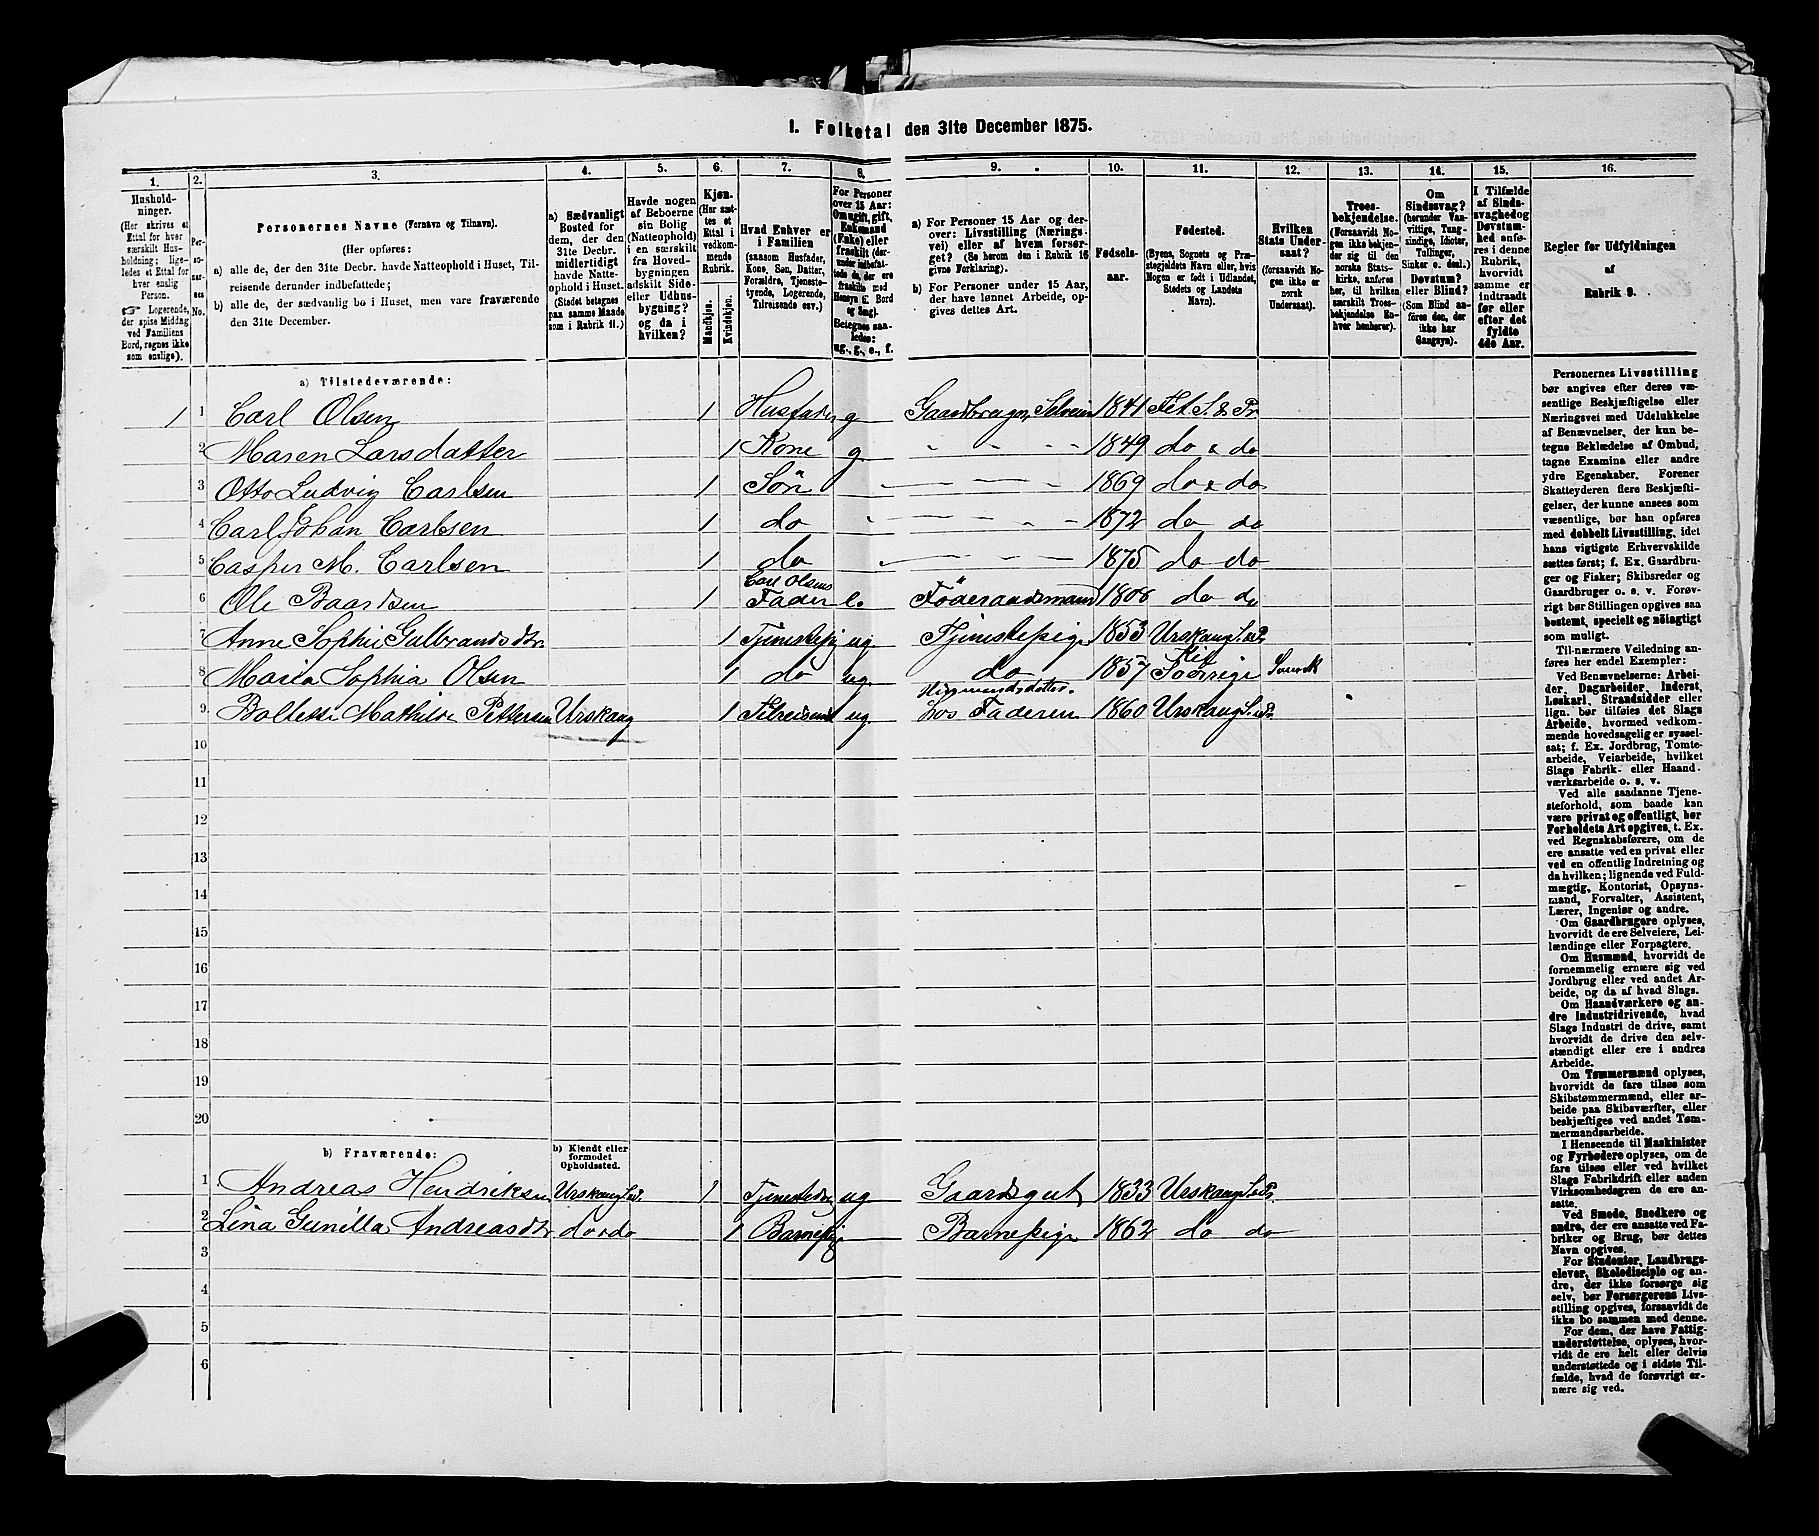 1. Folketal den 31te December 1875.
1. 2. 3. 4. 5. 6. 7. 8. 9. 10. 11. 12. 13. 14. 15. 16.
Hushold-
ninger.
(Her skrives et
Ettal for hver
særskilt Hus-
holdning; lige-
ledes et Ettal for
hver enslig
Person.
☞ Logerende,
der spise Middag
ved Familiens
Bord, regnes ikke
som enslige).
Per-
so-
ner-
nes
No.
Personernes Navne (Fornavn og Tilnavn).
(Her opføres:
a) alle de, der den 31te Decbr. havde Natteophold i Huset, Til-
reisende derunder indbefattede;
b) alle de, der sædvanlig bo i Huset, men vare fraværende
den 31te December.
a) Sædvanligt
Bosted for
dem, der den
31te Decbr.
midlertidigt
havde Natte-
ophold i Huset.
(Stedet betegnes
paa samme Maade
som i Rubrik 11.)
Havde nogen
af Beboerne
sin Bolig
(Natteophold)
i en særskilt
fra Hoved-
bygningen
adskilt Side-
eller Udhus-
bygning?
og da i
hvilken?
Kjøn.
(Her sæt-
tes et
Ettal i
vedkom-
mende
Rubrik.
Mandkjøn.
Kvindekjøn.
Hvad Enhver er
i Familien
(saasom Husfader,
Kone, Søn, Datter,
Forældre, Tjeneste-
tyende, Logerende,
Tilreisende osv.)
For Personer
over 15 Aar:
Om ugift, gift,
Enkemand
(Enke) eller
fraskilt (der-
under indbefat-
tede de, der ere
fraskilte med
Hensyn til Bord
og Seng).
Betegnes saa-
ledes:
ug., g., e., f.
a) For Personer 15 Aar og der-
over: Livsstilling (Nærings-
vei) eller af hvem forsør-
get? (Se herom den i Rubrik 16
givne Forklaring).
b) For Personer under 15 Aar,
der have lønnet Arbeide, op-
gives dettes Art.
Fødsels-
aar.
Fødested.
(Byens, Sognets og Præ-
stegjeldets Navn eller, hvis
Nogen er født i Udlandet,
Stedets og Landets
Navn).
Hvilken
Stats Under-
saat?
(forsaavidt No-
gen ikke er
norsk
Undersaat).
Troes-
bekjendelse.
(Forsaavidt No-
gen ikke bekjen-
der sig til den
norske Stats-
kirke, anføres
her, til hvilken
særskilt Troes-
bekjendelse En-
hver henhører).
Om
Sindssvag?
(herunder Van-
vittige, Tung-
sindige, Idioter,
Tullinger,
Sinker o. desl.)
Døvstum?
eller Blind?
(Som Blind an-
føres den, der
ikke har
Gangsyn).
I Tilfælde
af Sinds-
svaghed og
Døvstum-
hed anfø-
res i denne
Rubrik,
hvorvidt
samme er
indtraadt
før eller
efter det
fyldte
4de Aar.
Regler for Udfyldningen
af
Rubrik 9.
a) Tilstedeværende:
1 1 Carl Olsen 1 Husfader g Gaardbruger, Selveier 1841 Fet S. & Pr
2 Maren Larsdatter 1 Kone g " " " 1849 do & do
3 Otto Ludvig Carlsen 1 Søn 1869 do & do
4 Carl Johan Carlsen 1 do 1872 do do
5 Casper M. Carlsen 1 do 1875 do do
6 Ole Baardsen 1 Carl Olsens Fader e. Föderaadsmand 1808 do do
7 Anne Sophie Gulbrandsdtr 1 Tjenestepig ug. Tjenestepige 1853 Urskoug S. & P
8 Maria Sophia Olsen 1 do ug. do 1857 Sverrige Svensk
9 Boltette Mathilde Pettersen Urskoug 1 Tilreisende ug Husmandsdatter. hos Faderen 1860 Urskoug S. & Pr
10
11
12
13
14
15
16
17
18
19
20
b) Fraværende:
b) Kjendt eller
formodet
Opholdssted.
1 Andreas Hendriksen Urskoug S. & P. 1 Tjenestedr ug Gaardsgut 1833 Urskoug S. & Pr.
2 Lina Gunilla Andreasdtr do & do 1 Barnepig Barnepige 1862 do do
3
4
5
6
Personernes Livsstilling
bør angives efter deres væ-
sentlige Beskjæftigelse eller
Næringsvei med Udelukkelse
af Benævnelser, der kun be-
tegne Beklædelse af Ombud,
tagne Examina eller andre
ydre Egenskaber. Forener
Skatteyderen flere Beskjæfti-
gelser, der kunne ansees som
væsentlige, bør han opføres
med dobbelt Livsstilling, idet
hans vigtigste Erhvervskilde
sættes først; f. Ex. Gaardbru-
ger og Fisker; Skibsreder og
Gaardbruger o. s. v. Forøv-
rigt bør Stillingen opgives saa
bestemt, specielt og nöiagtigt
som muligt.
Til nærmere Veiledning an-
føres her endel Exempler:
Ved Benævnelserne: Arbei-
der, Dagarbeider, Inderst,
Løskarl, Strandsidder eller
lign. bør tilføies det Slags
Arbeide, hvormed vedkom-
mende hovedsagelig er syssel-
sat; f. Ex. Jordbrug, Tomte-
arbeide, Veiarbeide, hvilket
Slags Fabrik- eller Haand-
værksarbeide o. s. v.
Ved alle saadanne Tjene-
steforhold, som baade kan
være privat og offentligt, bør
Forholdets Art opgives, t. Ex.
ved Regnskabsførere, om de
ere ansatte ved en privat eller
ved en offentlig Indretning og
da hvilken; lignende ved Fuld-
mægtig, Kontorist, Opsyns-
mand, Forvalter, Assistent,
Lærer, Ingeniør og andre.
Om Gaardbrugere oplyses,
hvorvidt de ere Selveiere, Lei-
lændinge eller Forpagtere.
Om Husmænd, hvorvidt de
fornemmelig ernære sig ved
Jordbrug eller ved andet Ar-
beide, og da af hvad Slags.
Om Haandværkere og an-
dre Industridrivende, hvad
Slags Industri de drive, samt
hvorvidt de drive den selv-
stændigt eller ere i andres
Arbeide.
Om Tømmermænd oplyses,
hvorvidt de fare tilsøs som
Skibstømmermænd, eller ar-
beide paa Skibsværfter, eller
beskjæftiges ved andet Tøm-
mermandsarbeide.
I Henseende til Maskinister
og Fyrbødere oplyses, om de
fare tilsøs eller ved hvilket
Slags Fabrikdrift eller anden
Virksomhedsgren de ere an-
satte.
Ved Smede, Snedkere og
andre, der ere ansatte ved Fa-
briker og Brug, bør dettes
Navn opgives.
For Studenter, Landbrugs-
elever, Skoledisciple og an-
dre, der ikke forsørge sig
selv, bør Forsørgerens Livs-
stilling opgives, forsaavidt de
ikke bo sammen med denne.
For dem, der have Fattig-
understøttelse, oplyses, hvor-
vidt de ere helt eller delvis
understøttede og i sidste Til-
fælde, hvad de forøvrigt er-
nære sig ved.